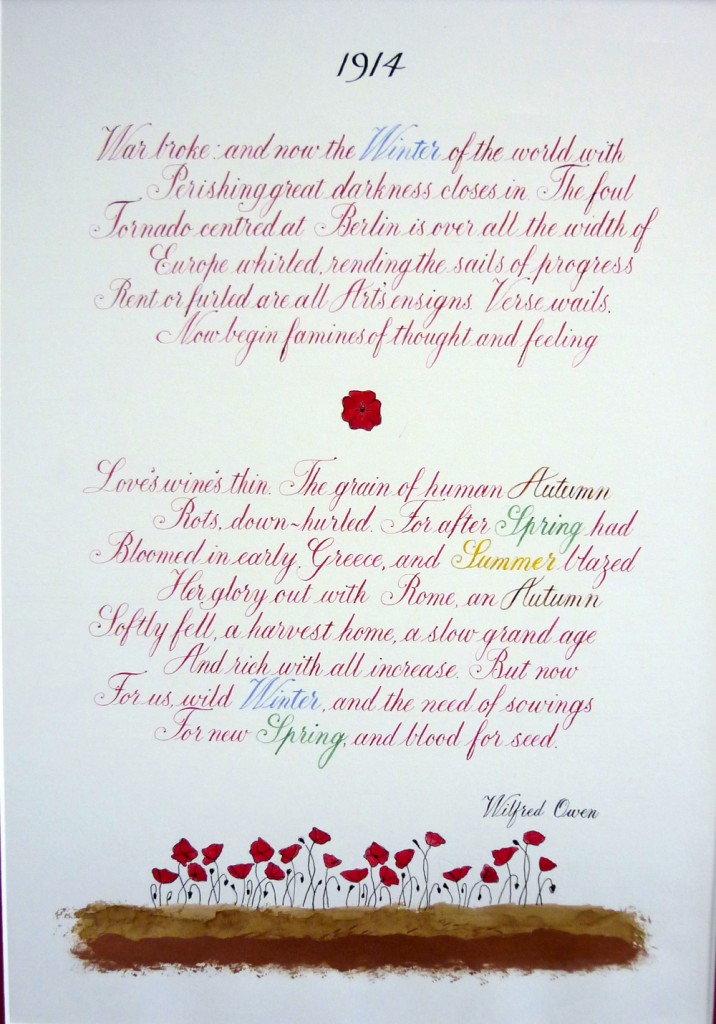 1914
War broke: and now the Winter of the world with
Perishing great darkness closes in. The foul
Tornado centred at Berlin is over all the width of
Europe whirled, rending the sails of progress
Rent or furled are all Art's ensigns. Verse wails.
Now begin famines of thought and feeling
Love's wine's thin. The grain of human Autumn
Rots, down-hurled. For after Spring had
Bloomed in early Greece, and Summer blazed
Her glory out with Rome, an Autumn
Softly fell, a harvest home, a slow grand age
And rich with all increase. But now
For us, wild Winter, and the need of sowings
For new Spring, and blood for seed.
Wilfred Owen